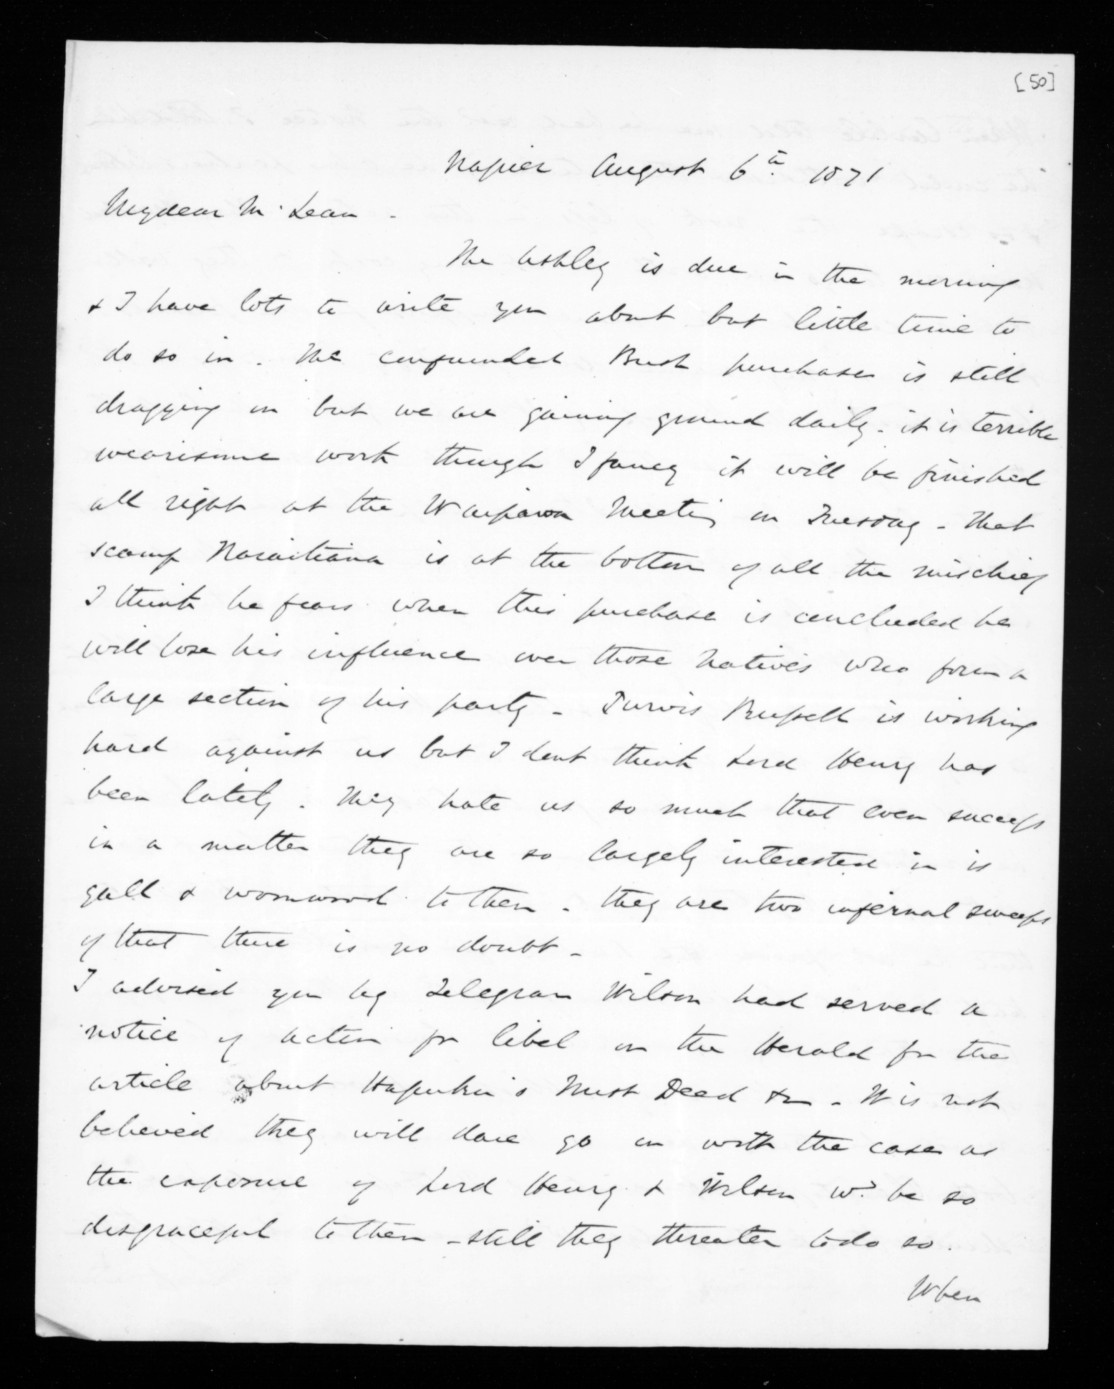 [50]
Napier August 6th 1871
My dear McLean -
The Ashley is due in the morning
& I have lots to write you about but little time to
do so in. The confounded Bush purchase is still
dragging on but we are gaining ground daily. it is terrible
wearisome work though I fancy it will be finished
all right at the Waipawa Meeting on Tuesday - that
scamp Karaitiana is at the bottom of all the mischief
I think he fears when this purchase is concluded he
will lose his influence over those Natives who form a
large section of his party - Purvis Russell is working
hard against us but I dont think Lord Henry has
been lately. They hate us so much that even success
in a matter they are so largely interested in is
gall & wormwood to them - they are two infernal sweeps
of that there is no doubt -
I advised you by Telegram Wilson had served a
notice of action for libel on the Herald for the
article about Hapuku's Trust Deed &c - It is not
believed they will dare go on with the case as
the exposure of Lord Henry & Wilson wd be so
disgraceful to them - still they threaten to do so.
When